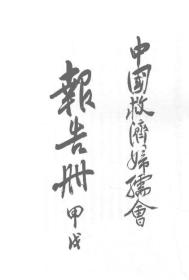 中國救濟婦孺會
報告册
甲戌